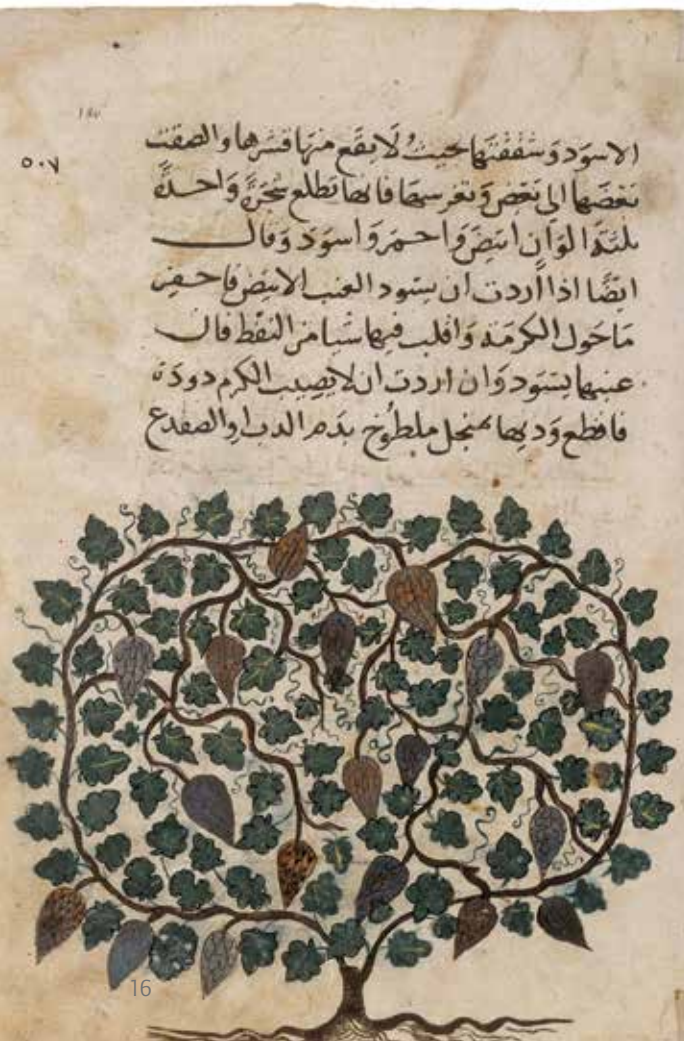 ٥٠٧
الاسود وشققتها بحيث لا يقع منها قشرها والصقت
بعضها الى بعض وتغرسها فانها تطلع شجرة واحدة
بثلثة الوان ابيض واحمر واسود وقال
ايضا اذا أردت ان يسود العنب الابيض فاحفر
ما حول الكرمة واقلب فيها شيا من النفط فان
عنبها يسود وان اردت ان لا يصيب الكرم دودة
فاقطع وديها بمنجل ملطوخ بدم الدب او الضفدع
16